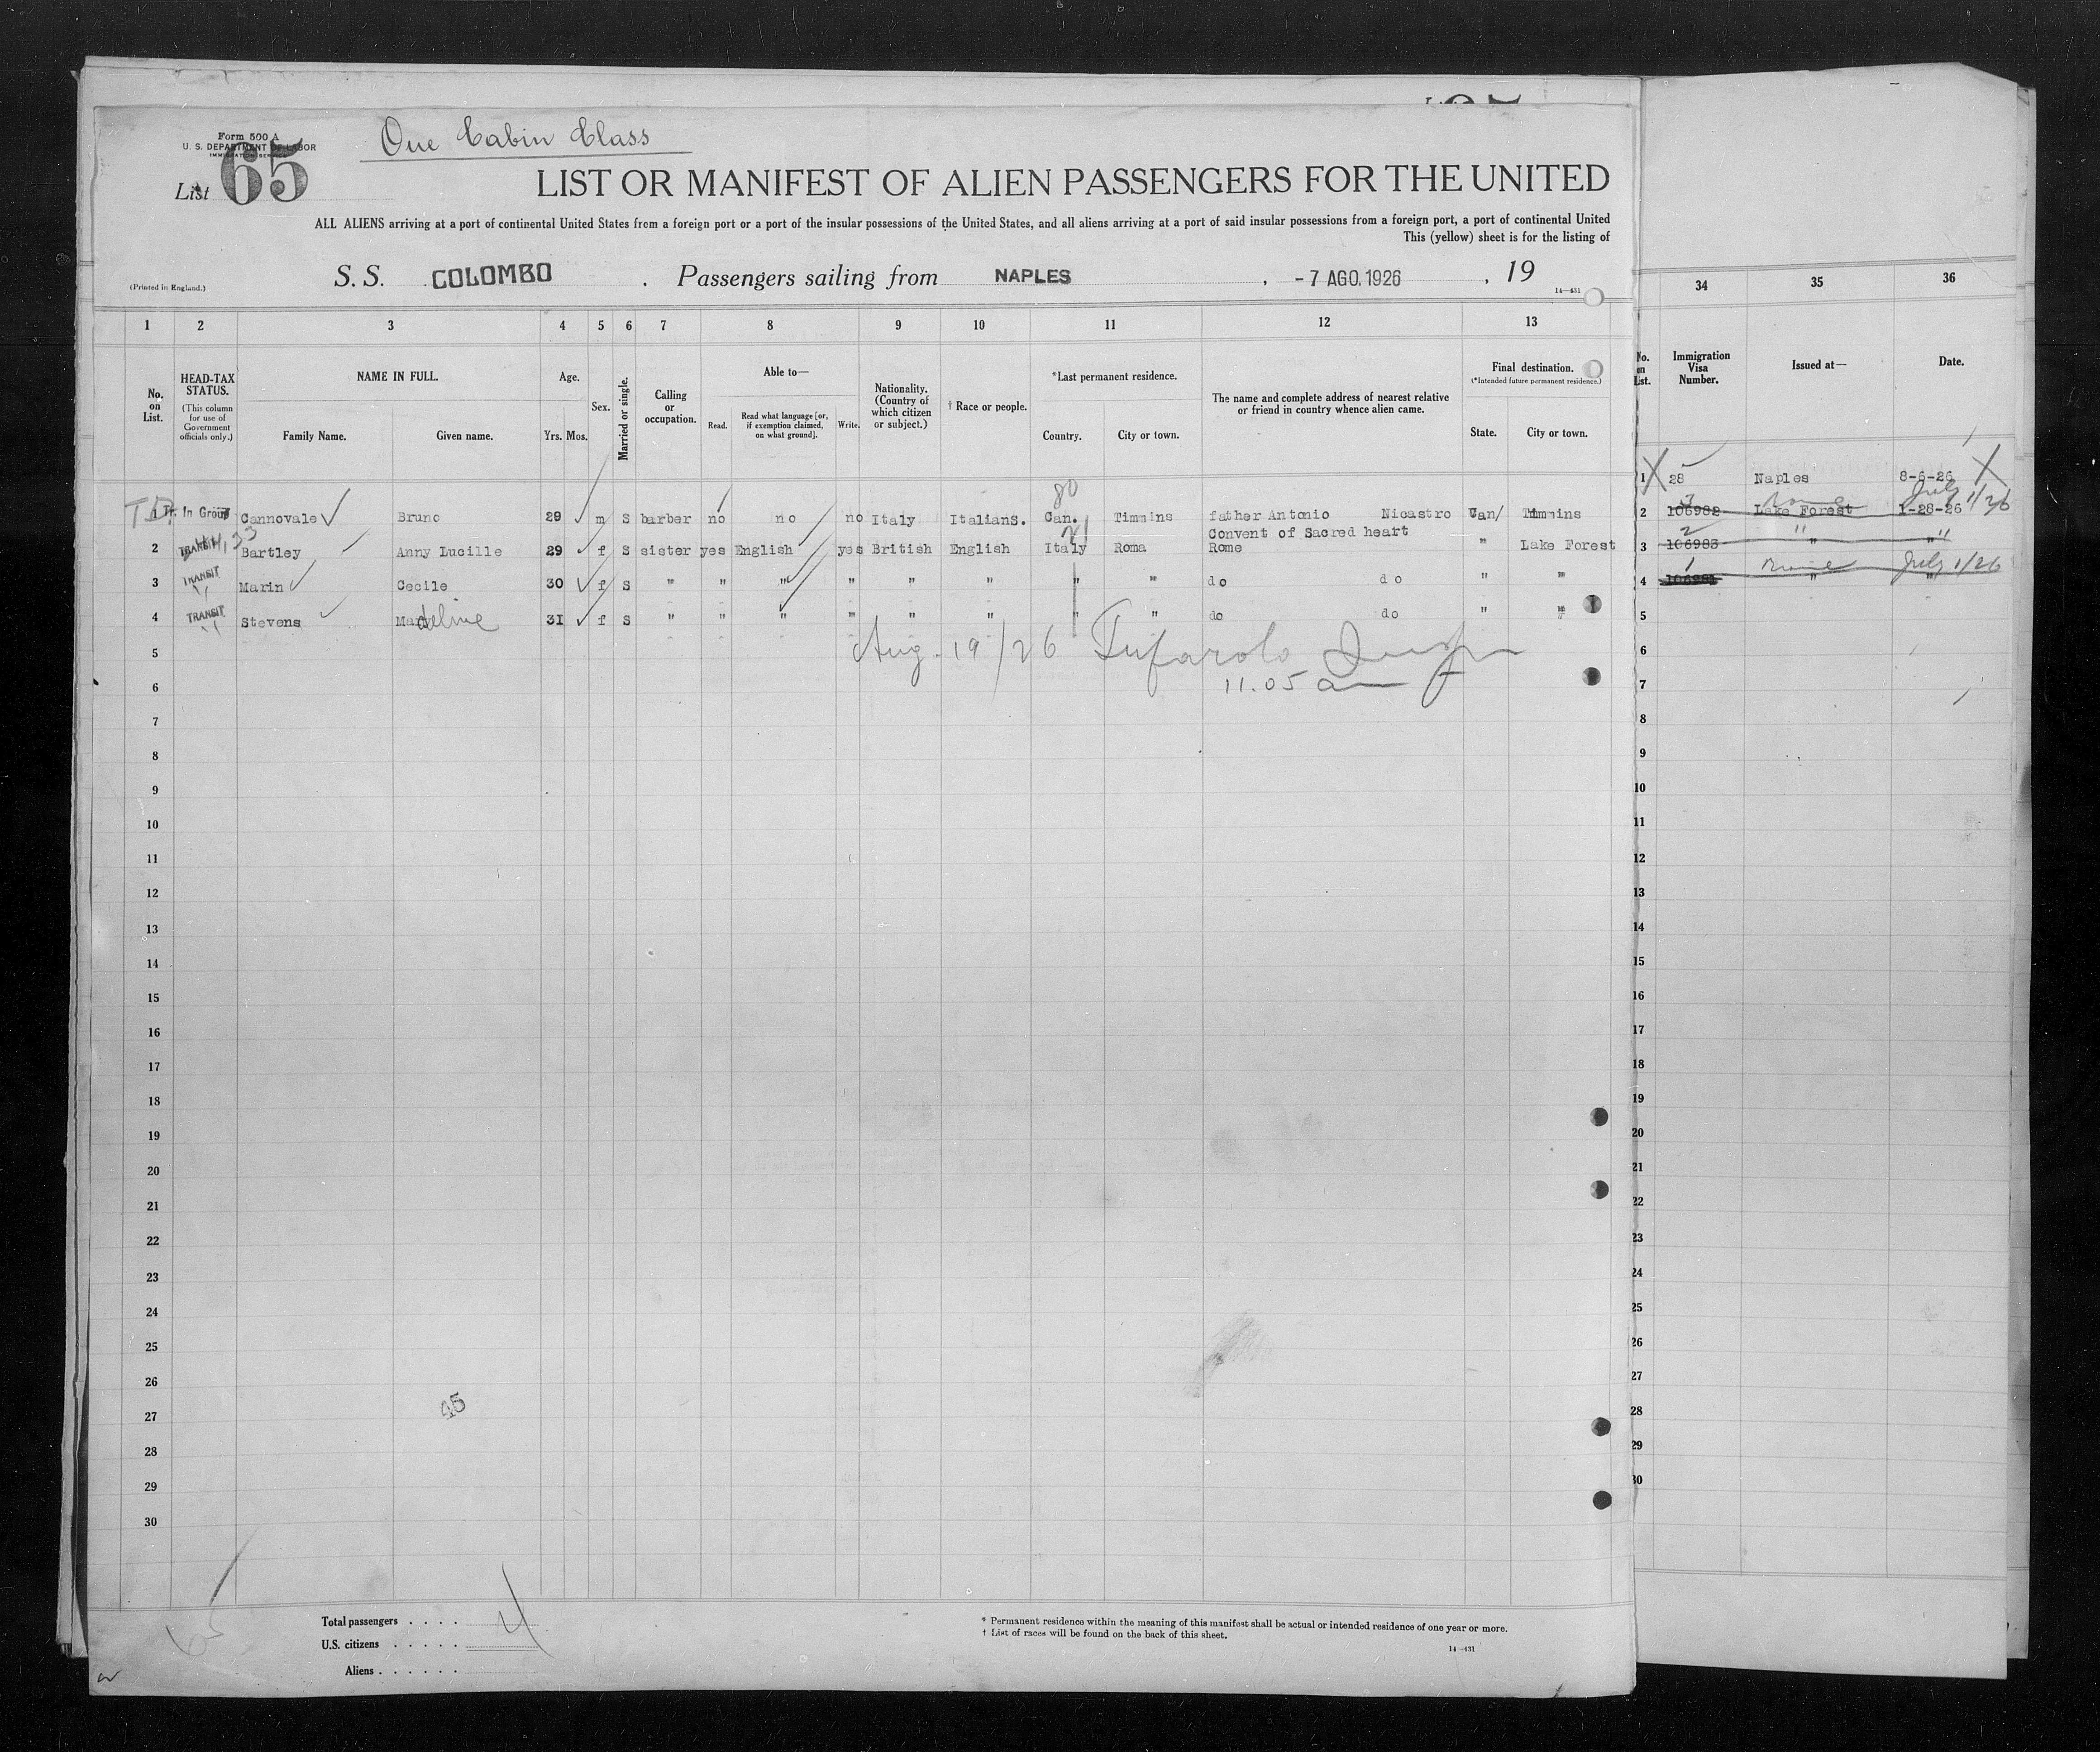 Form 500 A
U. S. DEPARTMENT OF LABOR
IMMIGRATION SERVICE
List 65
One Cabin Class
LIST OR MANIFEST OF ALIEN PASSENGERS FOR THE UNITED
ALL ALIENS arriving at a port of continental United States from a foreign port or a port of the insular possessions of the United States, and all aliens arriving at a port of said insular possessions from a foreign port, a port of continental United
This (yellow) sheet is for the listing of
(Printed in England.)
S. S. COLOMBO . Passengers sailing from NAPLES , -7 AGO.1926 , 19
14—431
1 2 3 4 5 6 7 8 9 10 11 12 13
No. on List.
HEAD-TAX STATUS. (This column for use of Government officials only.)
NAME IN FULL. Family Name. Given name.
Age. Yrs. Mos.
Sex.
Married or single.
Calling or occupation.
Able to— Read. Read what language [or, if exemption claimed, on what ground]. Write.
Nationality. (Country of which citizen or subject.)
† Race or people.
*Last permanent residence. Country. City or town.
The name and complete address of nearest relative or friend in country whence alien came.
Final destination. (*Intended future permanent residence.) State. City or town.
80
1 Cannovale Bruno 29 m S barber no no no Italy Italians. Can. Timmins father Antonio Nicastro Can/ Timmins
Convent of Sacred heart
2 TRANSIT Bartley Anny Lucille 29 f S sister yes English yes British English Italy Roma Rome " Lake Forest
3 TRANSIT Marin Cecile 30 f S " " " " " " " " do do " "
4 TRANSIT Stevens Madeline 31 f S " " " " " " " " do do " "
5
Aug. 19/26
6
11.05 am
7
8
9
10
11
12
13
14
15
16
17
18
19
20
21
22
23
24
25
26
27
45
28
29
30
65
Total passengers . . . . 4
U.S. citizens . . . . .
Aliens . . . . . .
* Permanent residence within the meaning of this manifest shall be actual or intended residence of one year or more.
† List of races will be found on the back of this sheet.
14—431
34 35 36
No. on List.
Immigration Visa Number.
Issued at—
Date.
1 28 Naples 8-6-26
3 Rome July 1/26
2 106982 Lake Forest 1-28-26
2 " "
3 106983 " "
1 Rome July 1/26
4 " "
5
6
7
8
9
10
11
12
13
14
15
16
17
18
19
20
21
22
23
24
25
26
27
28
29
30